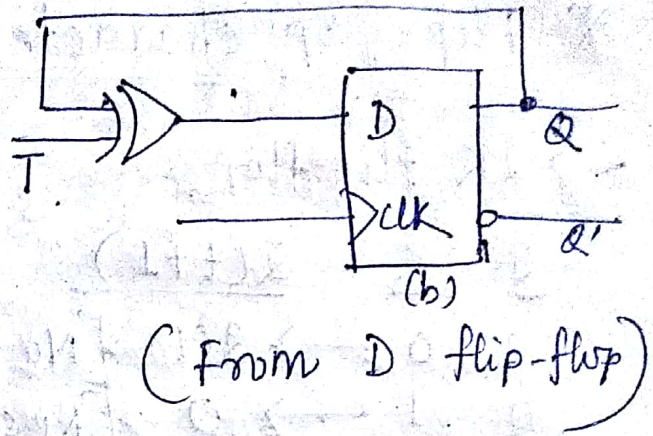 D
Q
T
clk
Q'
(b)
(From D flip-flop)